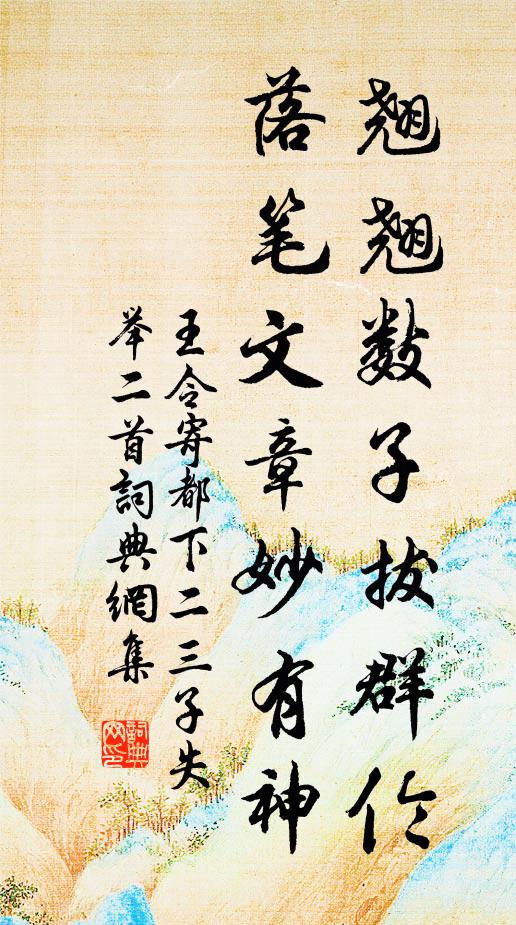 翘翘数子拔群伦
落笔文章妙有神
王令寄都下二三子失
举二首詞典網集
詞典
网印